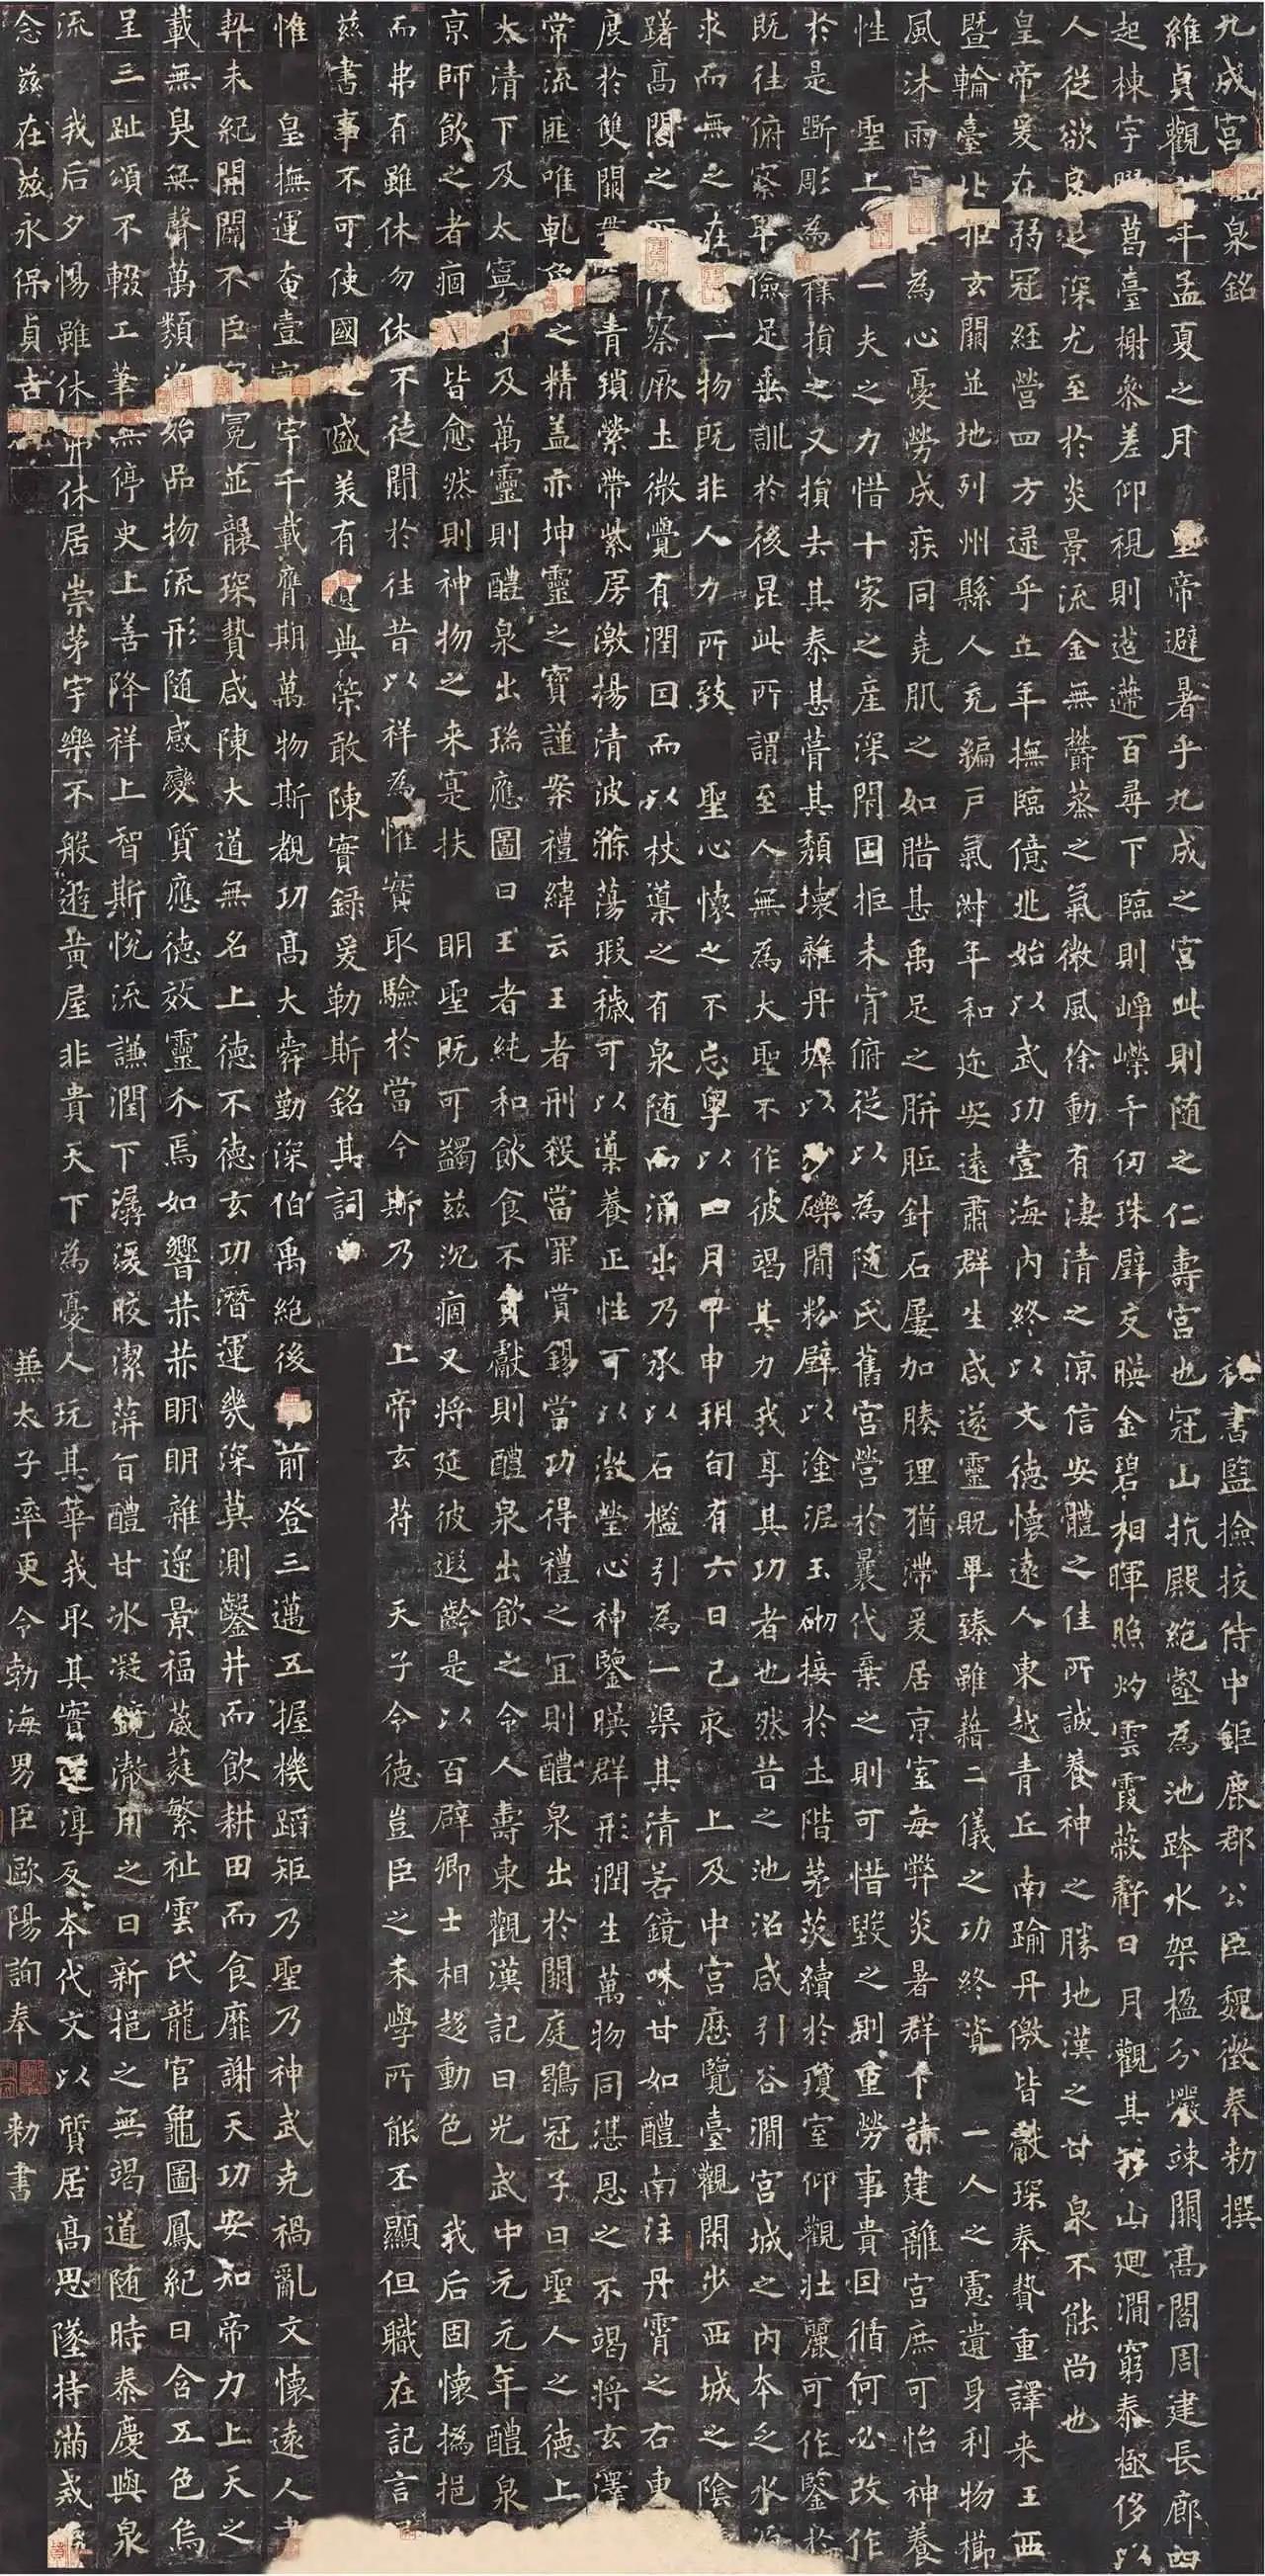 九成宮泉銘 秘書監撿挍侍中鉅鹿郡公臣魏徵奉勑撰
維貞觀年孟夏之月 皇帝避暑乎九成之宮此則随之仁壽宮也冠山抗殿絕壑為池跨水架楹分巖竦闕高閣周建長廊四
起棟宇膠葛臺榭叅差仰視則迢遰百尋下臨則崢嶸千仞珠璧交暎金碧相暉照灼雲霞蔽虧日月觀其移山廻澗窮泰極侈以
人從欲良足深尤至於炎景流金無欝蒸之氣微風徐動有淒清之涼信安體之佳所誠養神之勝地漢之甘泉不能尚也
皇帝爰在弱冠経營四方逯乎立年撫臨億兆始以武功壹海内終以文德懷遠人東越青丘南踰丹儌皆獻琛奉贄重譯来王西
暨輪臺北拒玄闕並地列州縣人充編戶氣淑年和迩安遠肅群生咸遂靈貺畢臻雖藉二儀之功終資一人之慮遺身利物櫛
風沐雨百為心憂勞成疾同堯肌之如腊甚禹足之胼胝針石屢加腠理猶滯爰居京室每弊炎暑群下請建離宮庶可怡神養
性 聖上一夫之力惜十家之産深閇固拒未肯俯從以為随氏舊宮營於曩代棄之則可惜毀之則重勞事貴因循何必改作
於是斲彫為樸損之又損去其泰甚葺其頹壞雜丹墀以沙礫間粉壁以塗泥玉砌接於土階茅茨續於瓊室仰觀壯麗可作鑒於
既往俯察卑儉足垂訓於後昆此所謂至人無為大聖不作彼竭其力我享其功者也然昔之池沼咸引谷澗宮城之内本乏水源
求而無之在一物既非人力所致 聖心懷之不忘粵以四月甲申朔旬有六日己亥上及中宮歷覽臺觀閑步西城之陰
躇高閣之下察厥土微覺有潤因而以杖導之有泉随而涌出乃承以石檻引為一渠其清若鏡味甘如醴南注丹霄之右東
度於雙闕貫青瑣縈帶紫房激揚清波滌蕩瑕穢可以導養正性可以澂瑩心神鑒暎群形潤生萬物同湛恩之不竭将玄澤
常流匪唯乾象之精盖亦坤靈之寶謹案禮緯云王者刑殺當罪賞錫當功得禮之宜則醴泉出於闕庭鶡冠子曰聖人之德上
太清下及太寧下及萬靈則醴泉出瑞應圖曰王者純和飲食不貢獻則醴泉出飲之令人壽東觀漢記曰光武中元元年醴泉
京師飲之者痼皆愈然則神物之来寔扶 明聖既可蠲茲沉痼又将延彼遐齡是以百辟卿士相趍動色 我后固懷撝挹
而弗有雖休勿休不徒聞於往昔以祥為懼實取驗於當今斯乃 上帝玄苻 天子令德豈臣之末學所能丕顯但職在記言
茲書事不可使國之盛美有遺典策敢陳實錄爰勒斯銘其詞曰
惟 皇撫運奄壹寰宇千載膺期萬物斯覩功高大舜勤深伯禹絕後前登三邁五握機蹈矩乃聖乃神武克禍亂文懷遠人書
契未紀開闢不臣冠冕並襲琛贄咸陳大道無名上德不德玄功潛運幾深莫測鑿井而飲耕田而食靡謝天功安知帝力上天之
載無臭無聲萬類資始品物流形随感變質應德效靈介焉如響赫赫明明雜遝景福葳蕤繁祉雲氏龍官龜圖鳳紀日含五色烏
呈三趾頌不輟工筆無停史上善降祥上智斯悅流謙潤下潺湲皎潔蓱旨醴甘冰凝鏡澈用之日新挹之無竭道随時泰慶與泉
流 我后夕惕雖休弗休居崇茅宇樂不般遊黃屋非貴天下為憂人玩其華我取其實還淳反本代文以質居高思墜持滿戒
念茲在茲永保貞吉 兼太子率更令勃海男臣歐陽詢奉 勑書